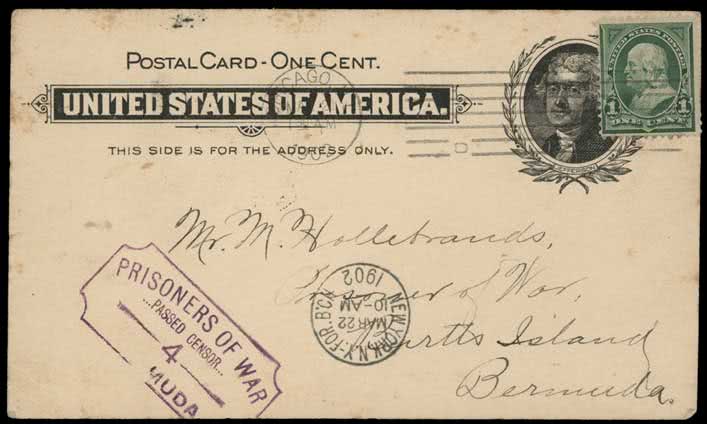 POSTAL CARD - ONE CENT.
UNITED STATES OF AMERICA.
THIS SIDE IS FOR THE ADDRESS ONLY.
CAGO
AM
1902
JEFFERSON
UNITED STATES POSTAGE
1 1
ONE CENT
Mr. M. Hollebrands,
Prisoner of War,
Burtts Island
Bermuda.
NEW YORK, N.Y. FOR. B'CH
MAR 22
10-AM
1902
PRISONERS OF WAR
...PASSED CENSOR...
4
MUDA